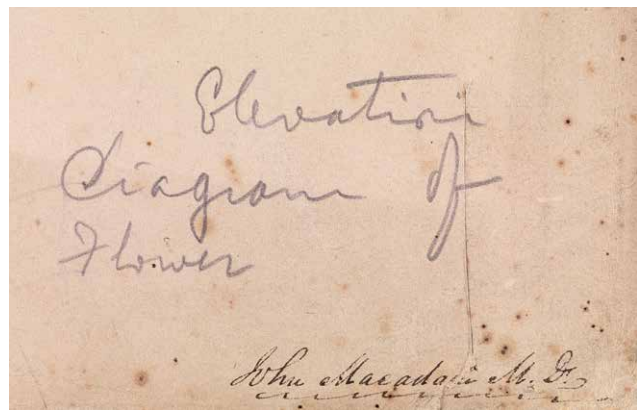 Elevation
Diagram of
Flower
John Macadam M. D.